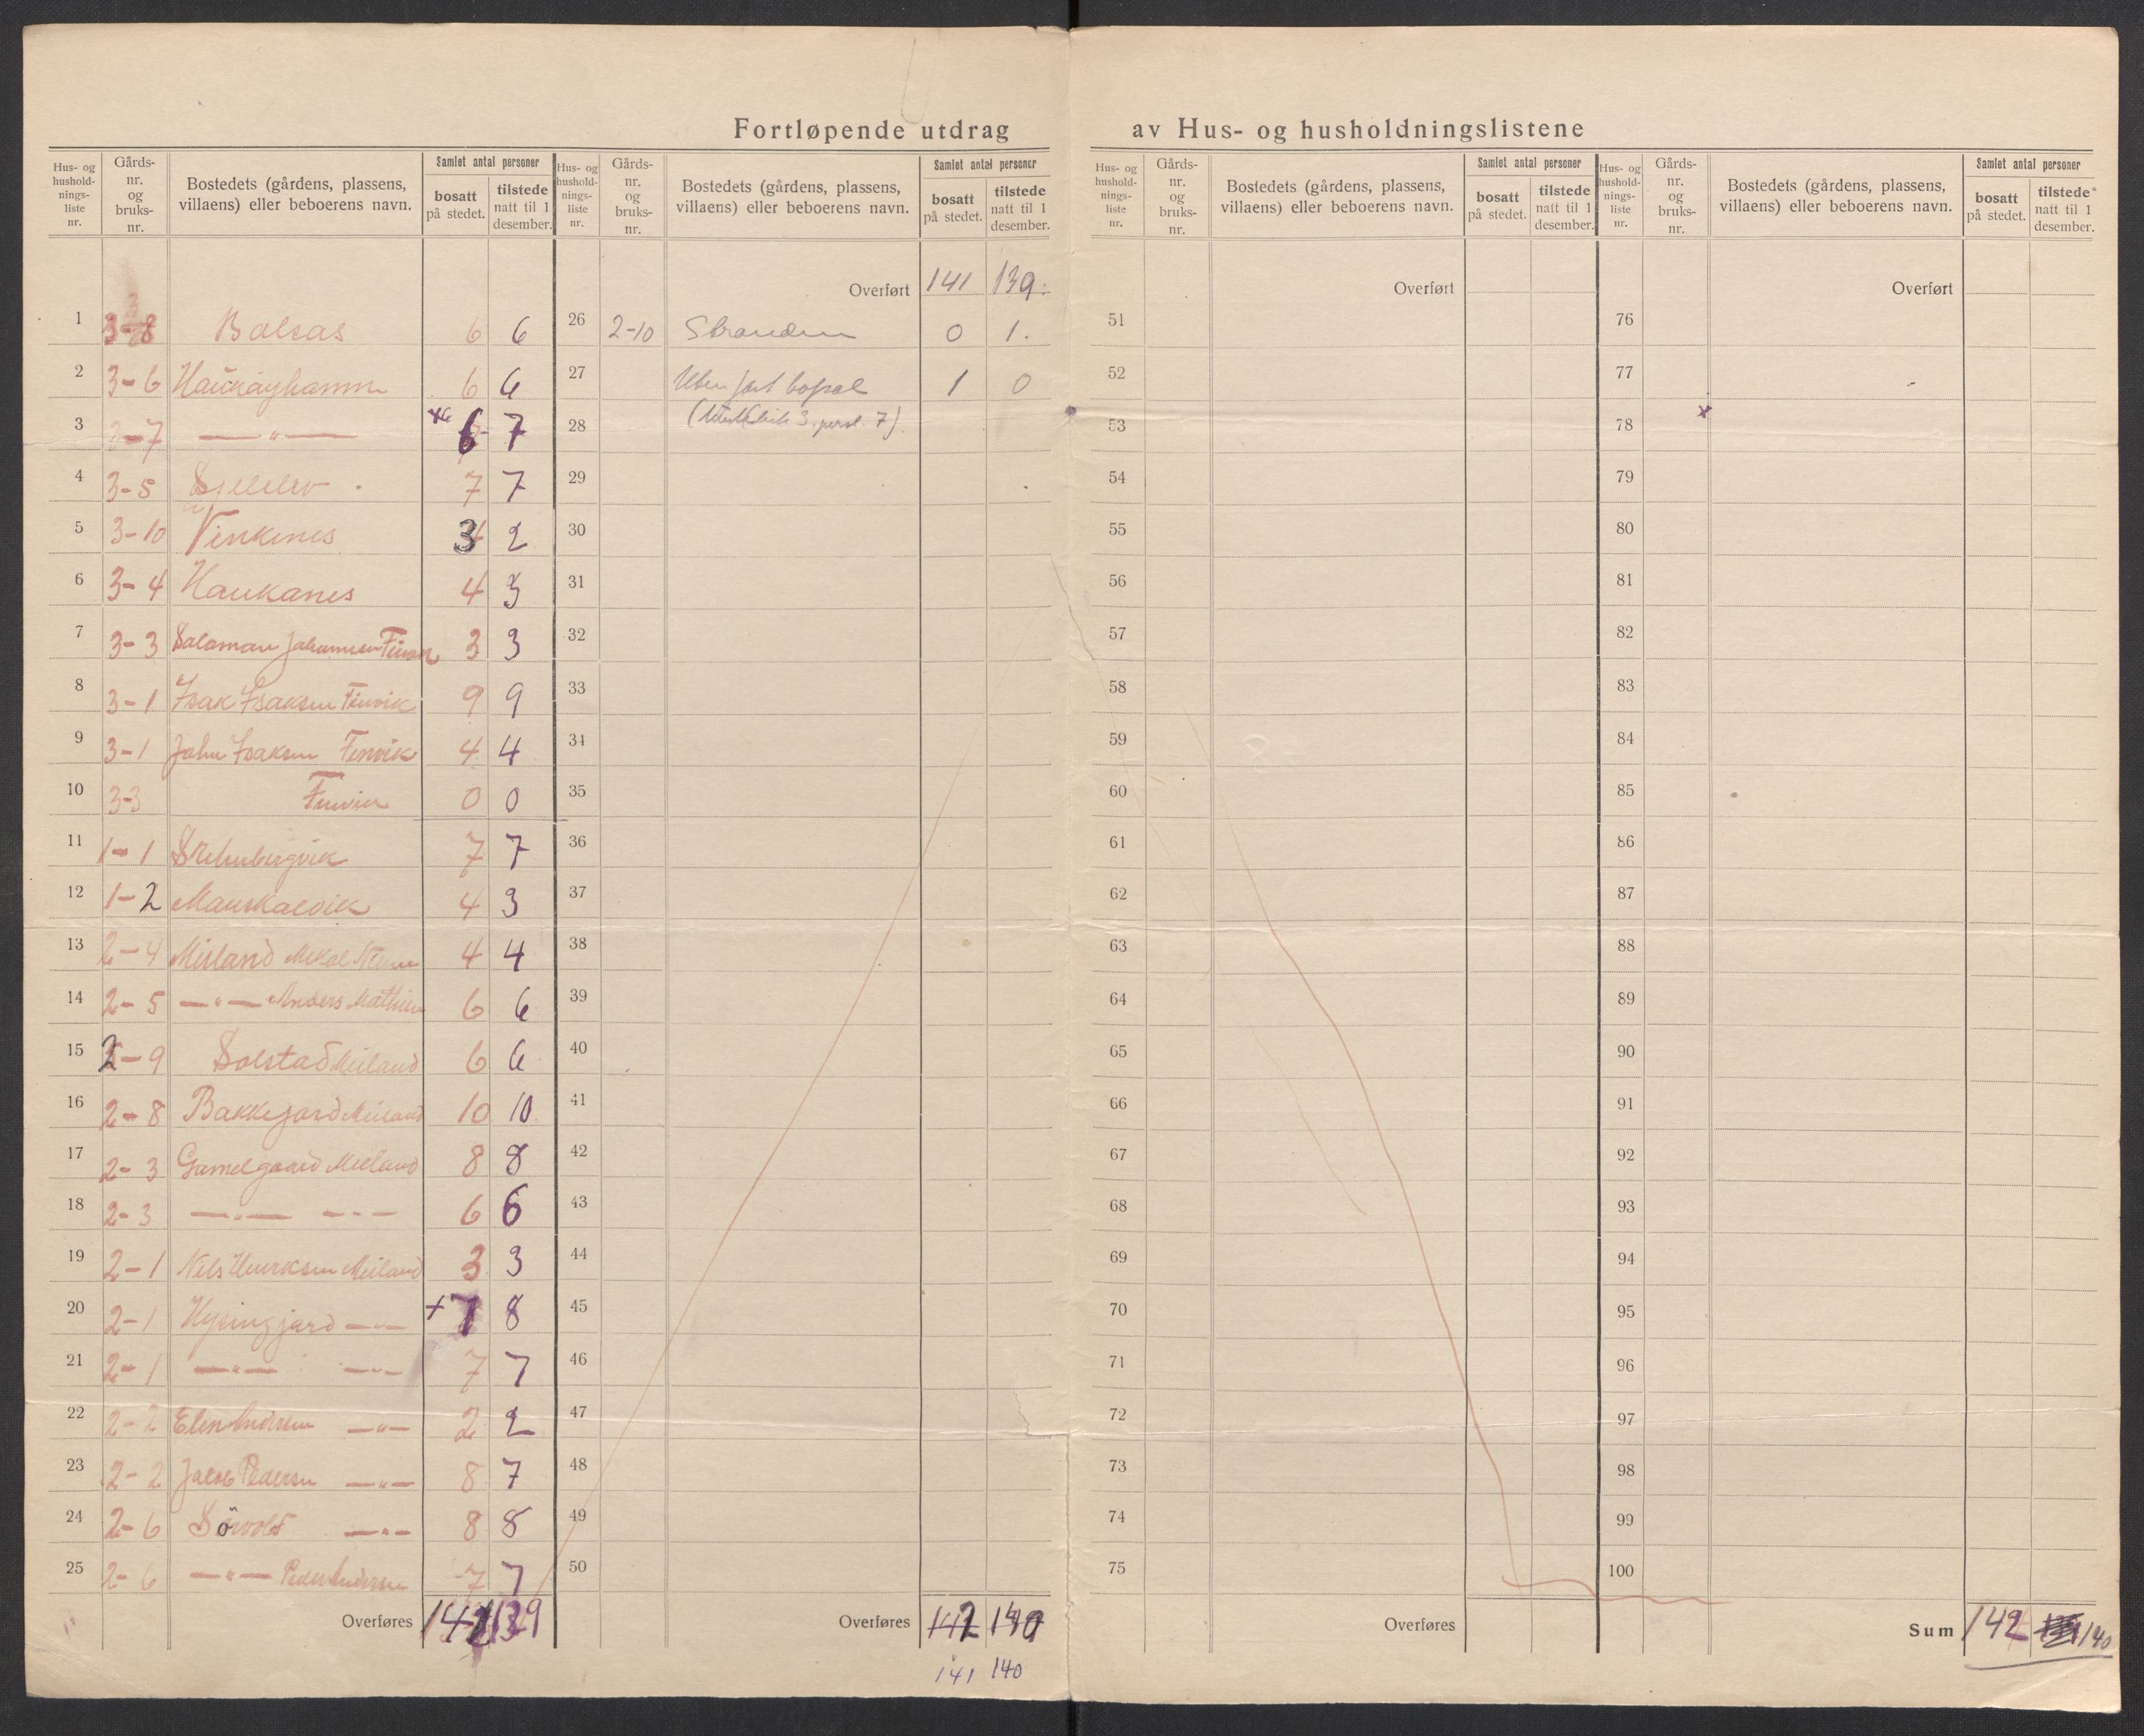 Fortløpende utdrag av Hus- og husholdningslistene
Hus- og hushold- nings- liste nr.
Gårds- nr. og bruks- nr.
Bostedets (gårdens, plassens, villaens) eller beboerens navn.
Samlet antal personer
bosatt på stedet.
tilstede natt til 1 desember.
1 3-8 6 6
2 3-6 6 6
3 -7 —"— 6 7
4 3-5 7 7
5 3-10 Vinkenes 3 2
6 3-4 Haukanes 4 3
7 3-3 Salaman Johannesen 3 3
8 3-1 Isak Isaksen Finvik 9 9
9 3-1 John Isaksen Finvik 4 4
10 3-3 Finvik 0 0
11 1-1 7 7
12 1-2 4 3
13 2-4 Meiland Mikal 4 4
14 2-5 —"— Anders Mathisen 6 6
15 2-9 Solstad Meiland 6 6
16 2-8 Bakkejord Meiland 10 10
17 2-3 Gamelgaard Meiland 8 8
18 2-3 —"— — - — 6 6
19 2-1 Nils Meiland 3 3
20 2-1 —"— + 7 8
21 2-1 —"— —"— 7 7
22 2-2 Elen Andersen —"— 2 2
23 2-2 Jakob Pedersen —"— 8 7
24 2-6 Sörvold —"— 8 8
25 2-6 —"— Peder Andersen 7 7
Overføres 141 139
Hus- og hushold- nings- liste nr.
Gårds- nr. og bruks- nr.
Bostedets (gårdens, plassens, villaens) eller beboerens navn.
Samlet antal personer
bosatt på stedet.
tilstede natt til 1 desember.
Overført 141 139.
26 2-10 Stranden 0 1.
27 Uten fast bopæl 1 0
28 3, pers. 7).
29
30
31
32
33
34
35
36
37
38
39
40
41
42
43
44
45
46
47
48
49
50
Overføres 142 140
141 140
Hus- og hushold- nings- liste nr.
Gårds- nr. og bruks- nr.
Bostedets (gårdens, plassens, villaens) eller beboerens navn.
Samlet antal personer
bosatt på stedet.
tilstede natt til 1 desember.
Overført
51
52
53
54
55
56
57
58
59
60
61
62
63
64
65
66
67
68
69
70
71
72
73
74
75
Overføres
Hus- og hushold- nings- liste nr.
Gårds- nr. og bruks- nr.
Bostedets (gårdens, plassens, villaens) eller beboerens navn.
Samlet antal personer
bosatt på stedet.
tilstede natt til 1 desember.
Overført
76
77
78
79
80
81
82
83
84
85
86
87
88
89
90
91
92
93
94
95
96
97
98
99
100
Sum 142 140